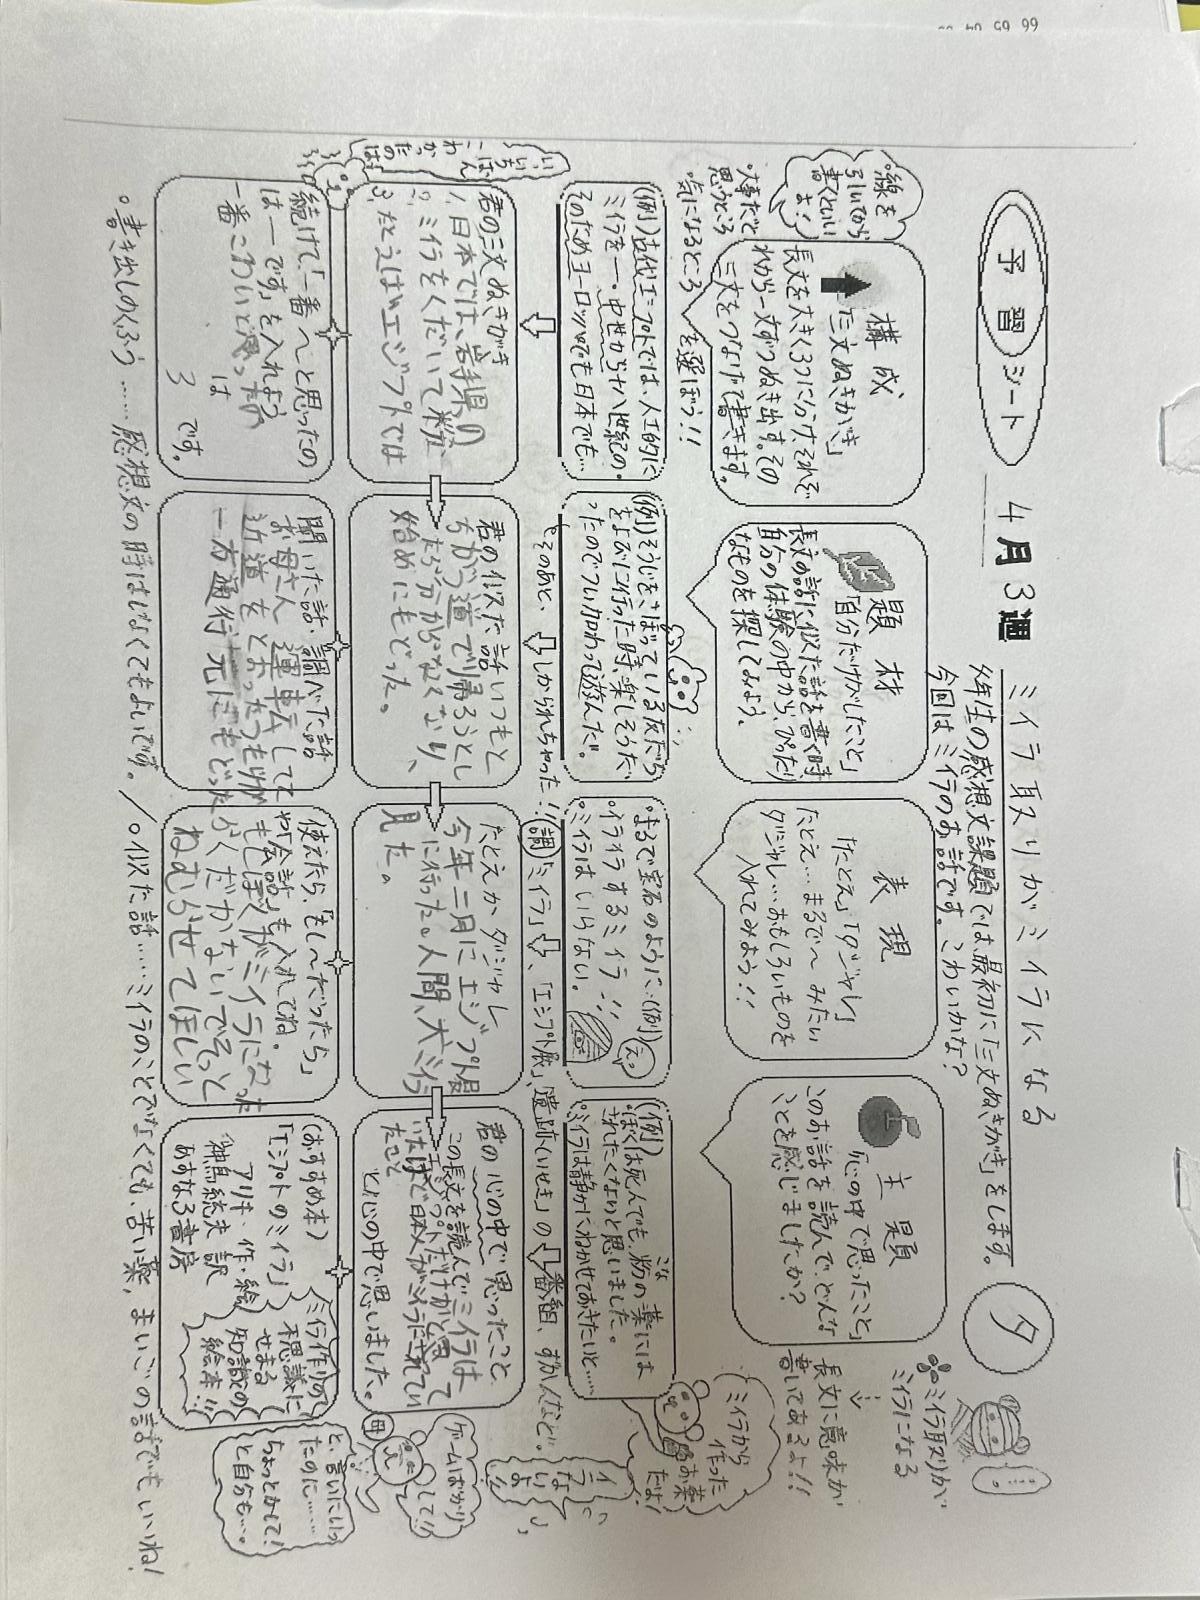 予習シート
4月3週
ミイラ取りがミイラになる
タ
今回はミイラのお話です。こわいかな?
ミイラ取りが
ミイラになる
↓
長文に意味が
書いてあるよ!!
線を
引いてから
書くといい
よ!
構成
「三文ぬきがき」
長文を大きく3つに分け、それぞ
れから一文ずつぬき出す。その
三文をつなげて書きます。
・大事だと
思うところ
・気になるところ
を選ぼう!!
題材
「自分だけがしたこと」
長文の話に似た話を書く時、
自分の体験の中から、ぴったり
なものを探してみよう。
表現
「たとえ」「ダジャレ」
たとえ…まるで〜みたい
ダジャレ…おもしろいものを
入れてみよう!!
主題
「心の中で思ったこと」
このお話を読んで、どんな
ことを感じましたか?
(例)古代エジプトでは、人工的に
ミイラを一・中世から十八世紀の・
そのためヨーロッパでも日本でも…
(例)そうじをさぼっている友だち
をよびに行った時、楽しそうだ
ったのでつい加わって遊んだ。
そのあと、しかられちゃった!!
まるで宝石のように…(例)
イライラするミイラ!!
ミイラはいらない。
(例)
ぼくは死んでも、粉の薬には
こな
されたくないと思いました。
ミイラは静かにねかせておきたいと……
ミイラから
作った
お薬
だよ!
調「ミイラ」、「エジプト展」、遺跡(いせき)の番組、ずかんなど。
いちばん
こわ
かっ
たの
は?
君の三文ぬきがき
1、日本では、岩手県の
2、ミイラをくだいて粉
3、たとえばエジプトでは
君の似た話いつもと
ちがう道で帰ろうとし
たら分からなくなり、
始めにもどった。
たとえかダジャレ
今年三月にエジプト展
に行った。人間、犬、ミイラ
見た。
君の心の中で思ったこと
この長文を読んでミイラは
エジプトだけかと思って
いたけど日本人がミイラにされてい
たこと
と心の中で思いました。
ゲームばかり
して!!
母
続けて、「一番〜と思ったの
は―です」を入れよう
一番こわいと思ったの
は
3 です。
聞いた話・調べた話
お母さん 運転してて
近道をとおったつもりが
一方通行元にもどった
使えたら、「もし〜だったら」
や「会話」も入れてね。
もしぼくがミイラになった
らくだかないでそっと
ねむらせてほしい
(おすすめ本)
「エジプトのミイラ」
アリキ・作・絵
神鳥統夫 訳
あすなろ書房
ミイラ作りの
不思議に
せまる
知識の
絵本!!
と、言いにいっ
たのに……
ちょっとかして!
と自分も…。
書き出しのくふう……感想文の時はしなくてもよいです。/○似た話……ミイラのことでなくても、苦い薬、まいごの話でもいいね!